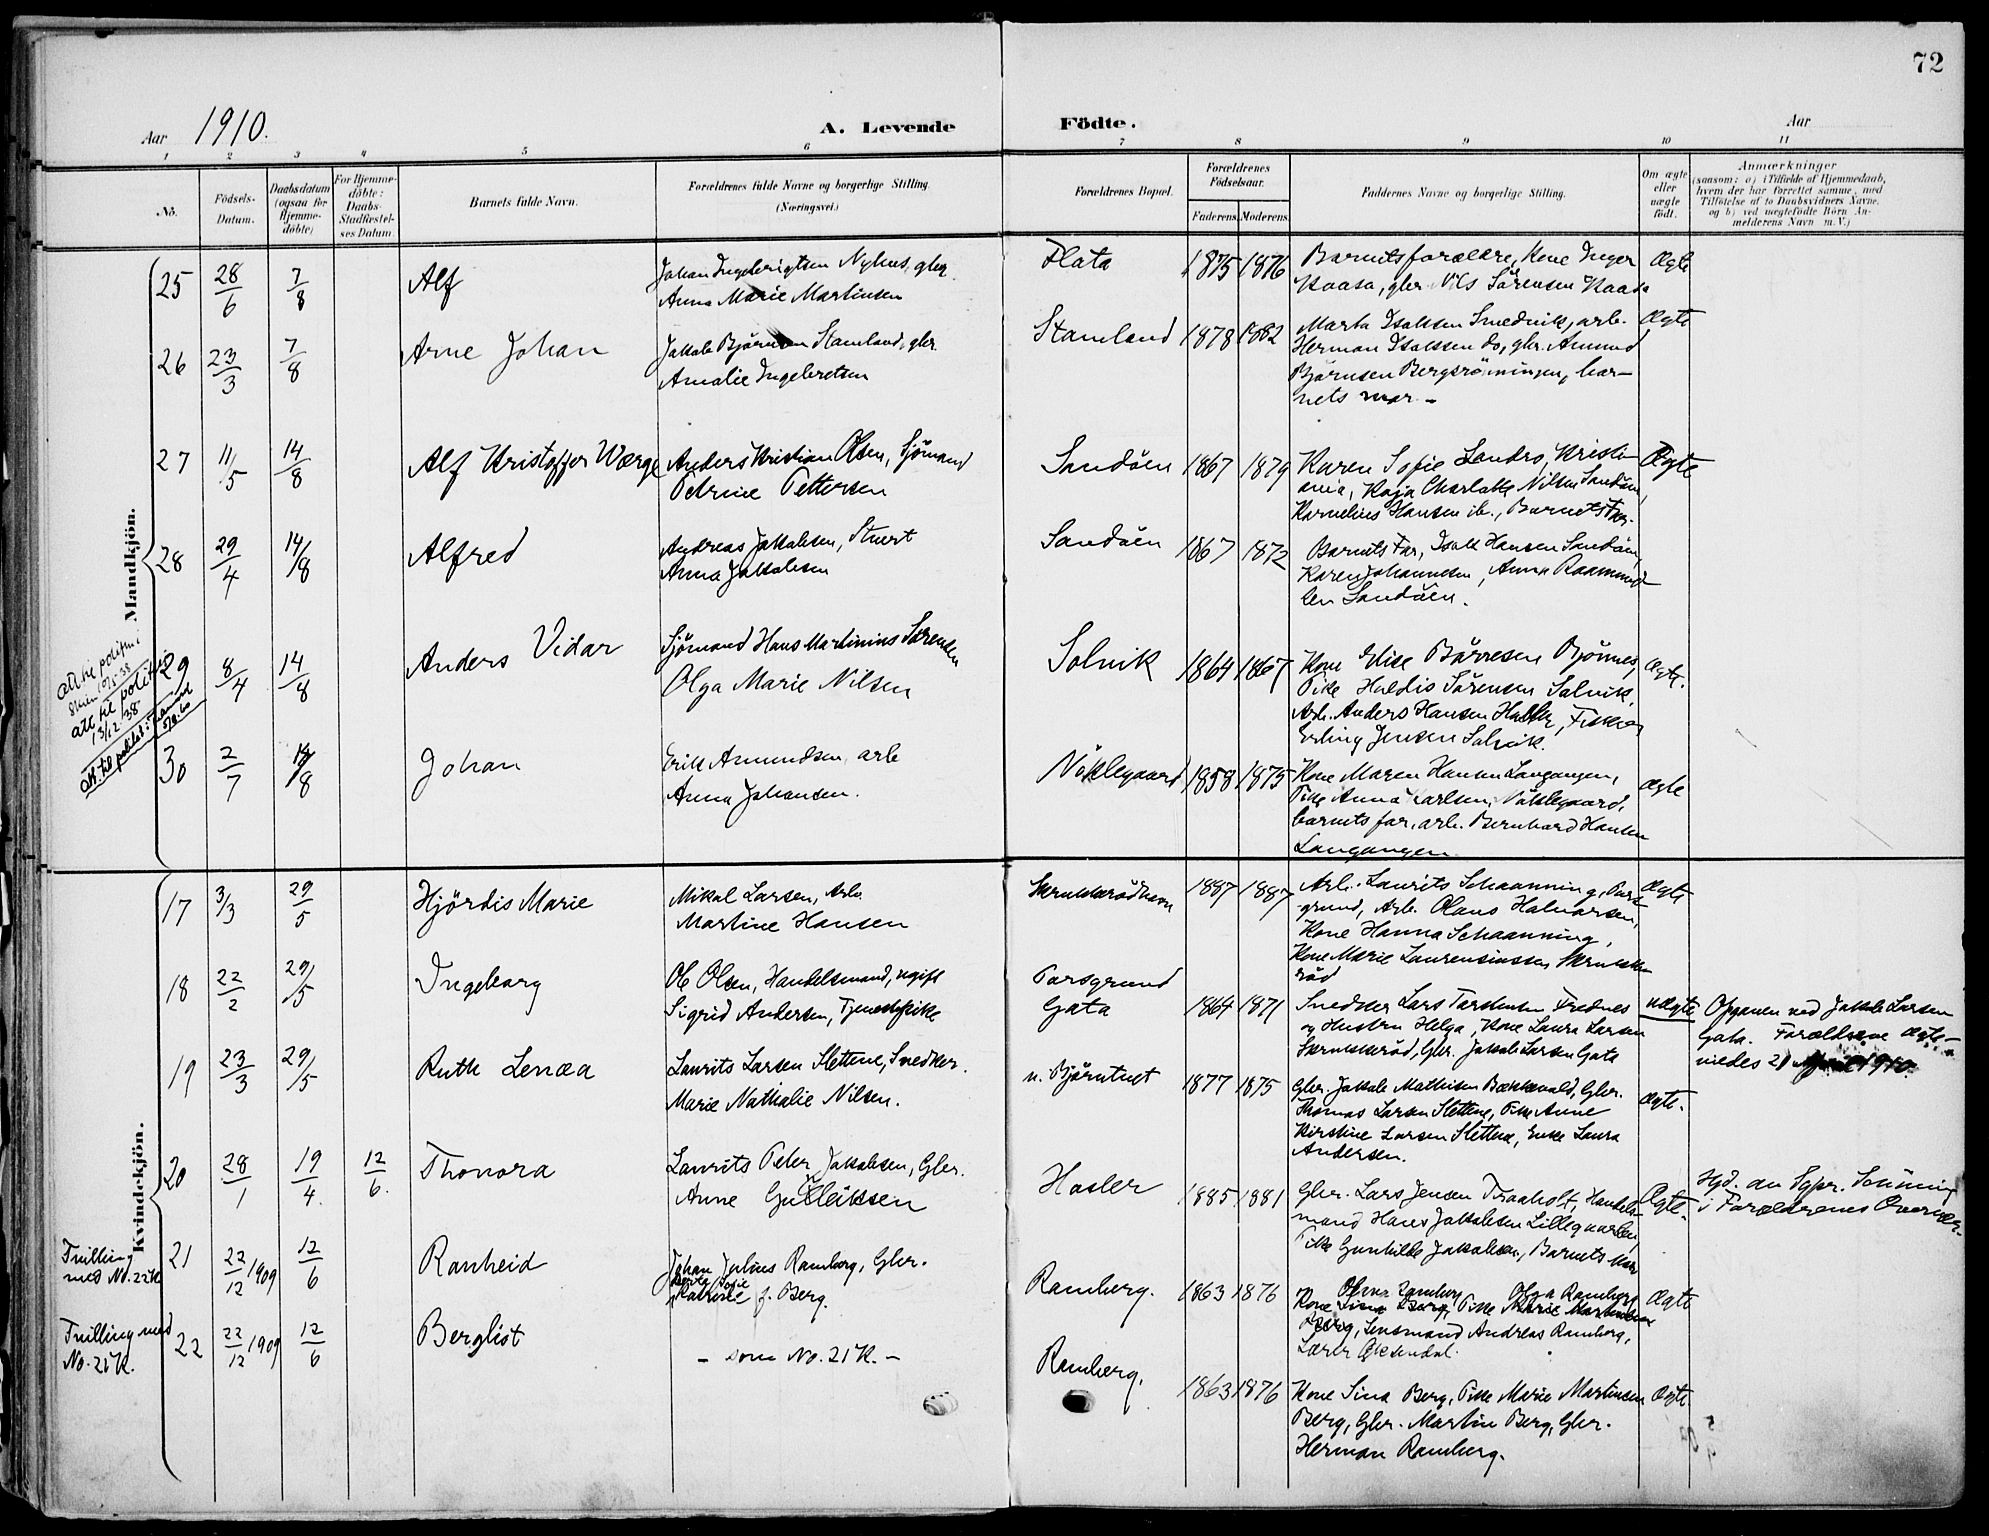 72
Aar 1910.
A. Levende Födte.
Aar
1 2 3 4 5 6 7 8 9 10 11
No.
Födsels-Datum.
Daabsdatum (ogsaa for Hjemme-döbte)
For Hjemme-döbte: Daabs-Stadfæstel-ses Datum.
Barnets fulde Navn.
Forældrenes fulde Navne og borgerlige Stilling. (Næringsvei.)
Forældrenes Bopæl.
Forældrenes Födselsaar.
Faderens. Moderens.
Faddernes Navne og borgerlige Stilling.
Om ægte eller uægte födt.
Anmærkninger
(saasom: a) i Tilfælde af Hjemmedaab,
hvem der har forrettet samme, med
Tilföielse af to Daabsvidners Navne.
og b) ved uægtefödte Börn An-
melderens Navn m.V.)
Mandkjön.
25 28/6 7/8 Alf
Johan Ingebrigtsen Nyhus, gbr.
Anna Marie Martinsen
Flata 1875 1876
Barnets forældre, Kone Inger
Kaasa, gbr. Nils Sörensen Kaasa
Ægte
26 23/3 7/8 Arne Johan
Jakob Björnsen Stamland, gbr.
Amalie Ingebretsen
Stamland 1878 1882
Marta Isaksen Smedvik, arb.
Herman Isaksen do, gbr. Amund
Björnsen Bergsröningen, bar-
nets mor.-
Ægte
27 11/5 14/8 Alf Kristoffer Wærge
Anders Kristian Olsen, Sjömand
Petrine Pettersen
Sandöen 1867 1879
Karen Sofie Sandro, Kristi-
ania, Kaja Charlotte Nilsen Sandöen,
Kornelius Hansen ib., Barnets Far.
Ægte
28 29/4 14/8 Alfred
Andreas Jakobsen, Stuert
Anna Jakobsen
Sandöen 1867 1872
Barnets Far, Isak Hansen Sandöen,
Karen Johannesen, Anna Raamund-
sen Sandöen.
29 8/4 14/8 Anders Vidar
Sjömand Hans Martinius Sörensen
Olga Marie Nilsen
Solvik 1864 1867
Kone Elise Börresen Björnes,
Pike Haldis Sörensen Solvik,
Arb. Anders Hansen , Fisker
Erling Jensen Solvik.
Ægte.
att. til politm. i
Skien 10/5-38
att til politi
13/12 38
att. til politiet i
5/9.60
30 2/7 14/8 Johan
Erik Amundsen, arb
Anna Johansen.
Nöklegaard 1858 1875
Kone Maren Hansen Langangen,
Pike Anna Karlsen, Nöklegaard,
barnets far, arb. Bernhard Hansen
Langangen.
Ægte
Kvindekjön.
17 3/3 29/5 Hjördis Marie
Mikal Larsen, Arb.
Martine Hansen
Skrukkerödhavn 1887 1887
Arb. Laurits Schaanning, Pors-
grund, Arb. Olaus Halvorsen,
Kone Hanna Schaanning,
Kone Marie Laurensiussen Skrukke-
röd
Ægte
18 22/2 29/5 Ingeborg
Ole Olsen, Handelsmand, ugift
Sigrid Andersen, Tjenestepike
Porsgrund
Gata
1864 1871
Snedker Lars Torstensen Frednes
og Hustru Helga, Kone Laura Larsen
Skrukkeröd, Gbr. Jakob Larsen Gata
uægte
Opgaven ved Jakob Larsen
Gata. Forældrene ægte-
viedes 21 April 1910.
19 23/3 29/5 Ruth Lenæa
Laurits Larsen Slettene, Snedker.
Marie Nathalie Nilsen.
n. Björntvet 1877 1875
Gbr. Jakob Mathisen Bækkevold, Gbr.
Thomas Larsen Slettene, Pike Anne
Kirstine Larsen Slettene, Enke Laura
Andersen.
Ægte.
20 28/1 19/4. 12/6. Thonora
Laurits Peter Jakobsen, Gbr.
Anne Gulleiksen
Hasler 1885 1881
Gbr. Lars Jensen Traaholt, Handels-
mand Hans Jakobsen Lillegaarden,
Pike Gunhilde Jakobsen, Barnets Mor
Ægte.
Hjd. av Sgpr. Schüning
i Forældrenes Overvær.
Tvilling
med No. 22 K
21 22/12 1909 12/6 Ranheid
Johan Julius Ramberg, Gbr.
Berta Sofie
Katrine f. Berg.
Ramberg. 1863 1876
Olava Ramberg Olga Ramberg
Kone Sina Berg, Pike Marie Martinsen
Berg, Lensmand Andreas Ramberg,
Lærer Gjesendal.
Ægte
Tvilling med
No. 21 K.
22 22/12 1909 12/6 Bergliot
- som No. 21 K. -
Ramberg. 1863 1876
Kone Sina Berg, Pike Marie Martinsen
Berg, Gbr. Martin Berg, Gbr.
Herman Ramberg.
Ægte